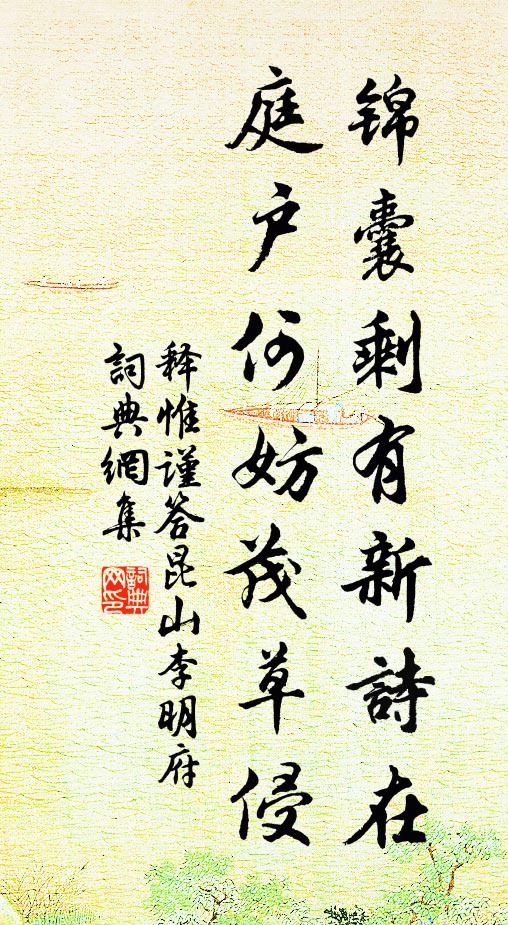 锦囊剩有新詩在
庭户何妨茂草侵
释惟谨答昆山李明府
詞典網集
詞典網印